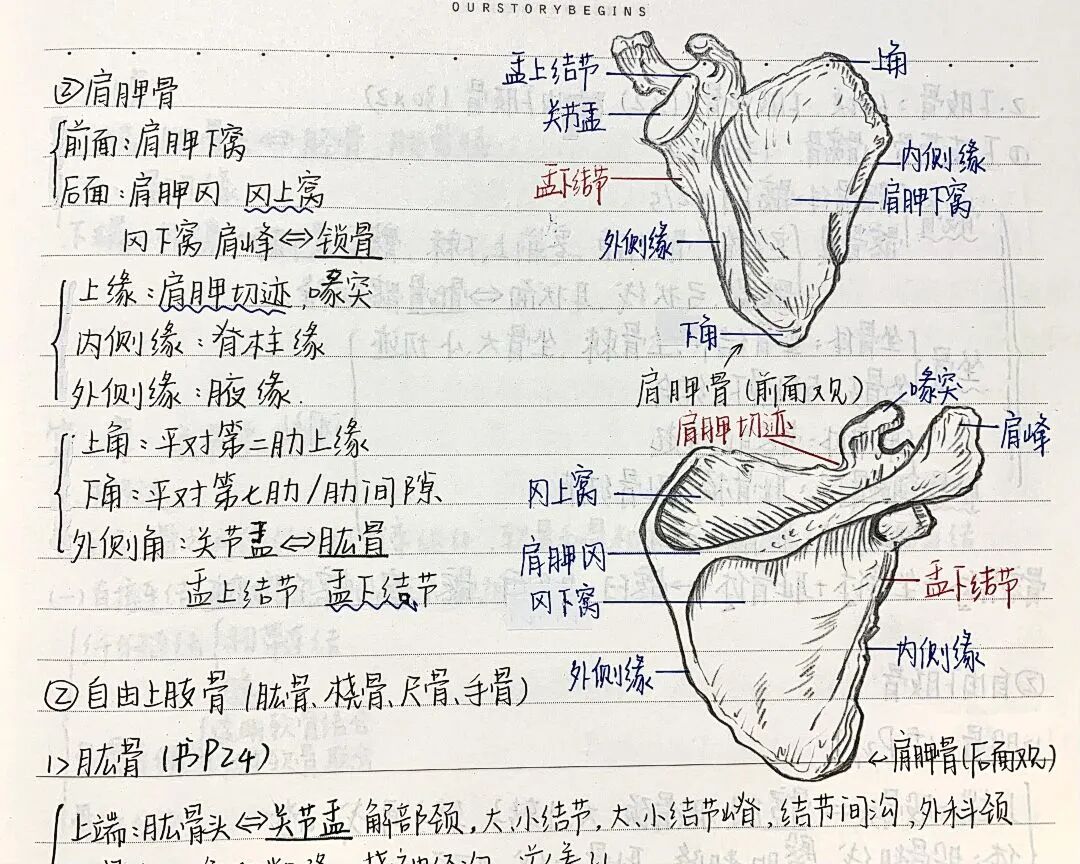 OURSTORYBEGINS
②肩胛骨
前面:肩胛下窝
后面:肩胛冈 冈上窝
冈下窝 肩峰⇔锁骨
上缘:肩胛切迹,喙突
内侧缘:脊柱缘
外侧缘:腋缘.
上角:平对第二肋上缘
下角:平对第七肋/肋间隙
外侧角:关节盂⇔肱骨
盂上结节 盂下结节
②自由上肢骨(肱骨、桡骨、尺骨、手骨)
1>肱骨(书P24)
上端:肱骨头⇔关节盂 解部颈,大、小结节,大、小结节嵴,结节间沟,外科颈
盂上结节
关节盂
盂下结节
外侧缘
下角
上角
内侧缘
肩胛下窝
肩胛骨(前面观)
肩胛切迹
喙突
肩峰
冈上窝
肩胛冈
冈下窝
外侧缘
盂下结节
内侧缘
←肩胛骨(后面观)